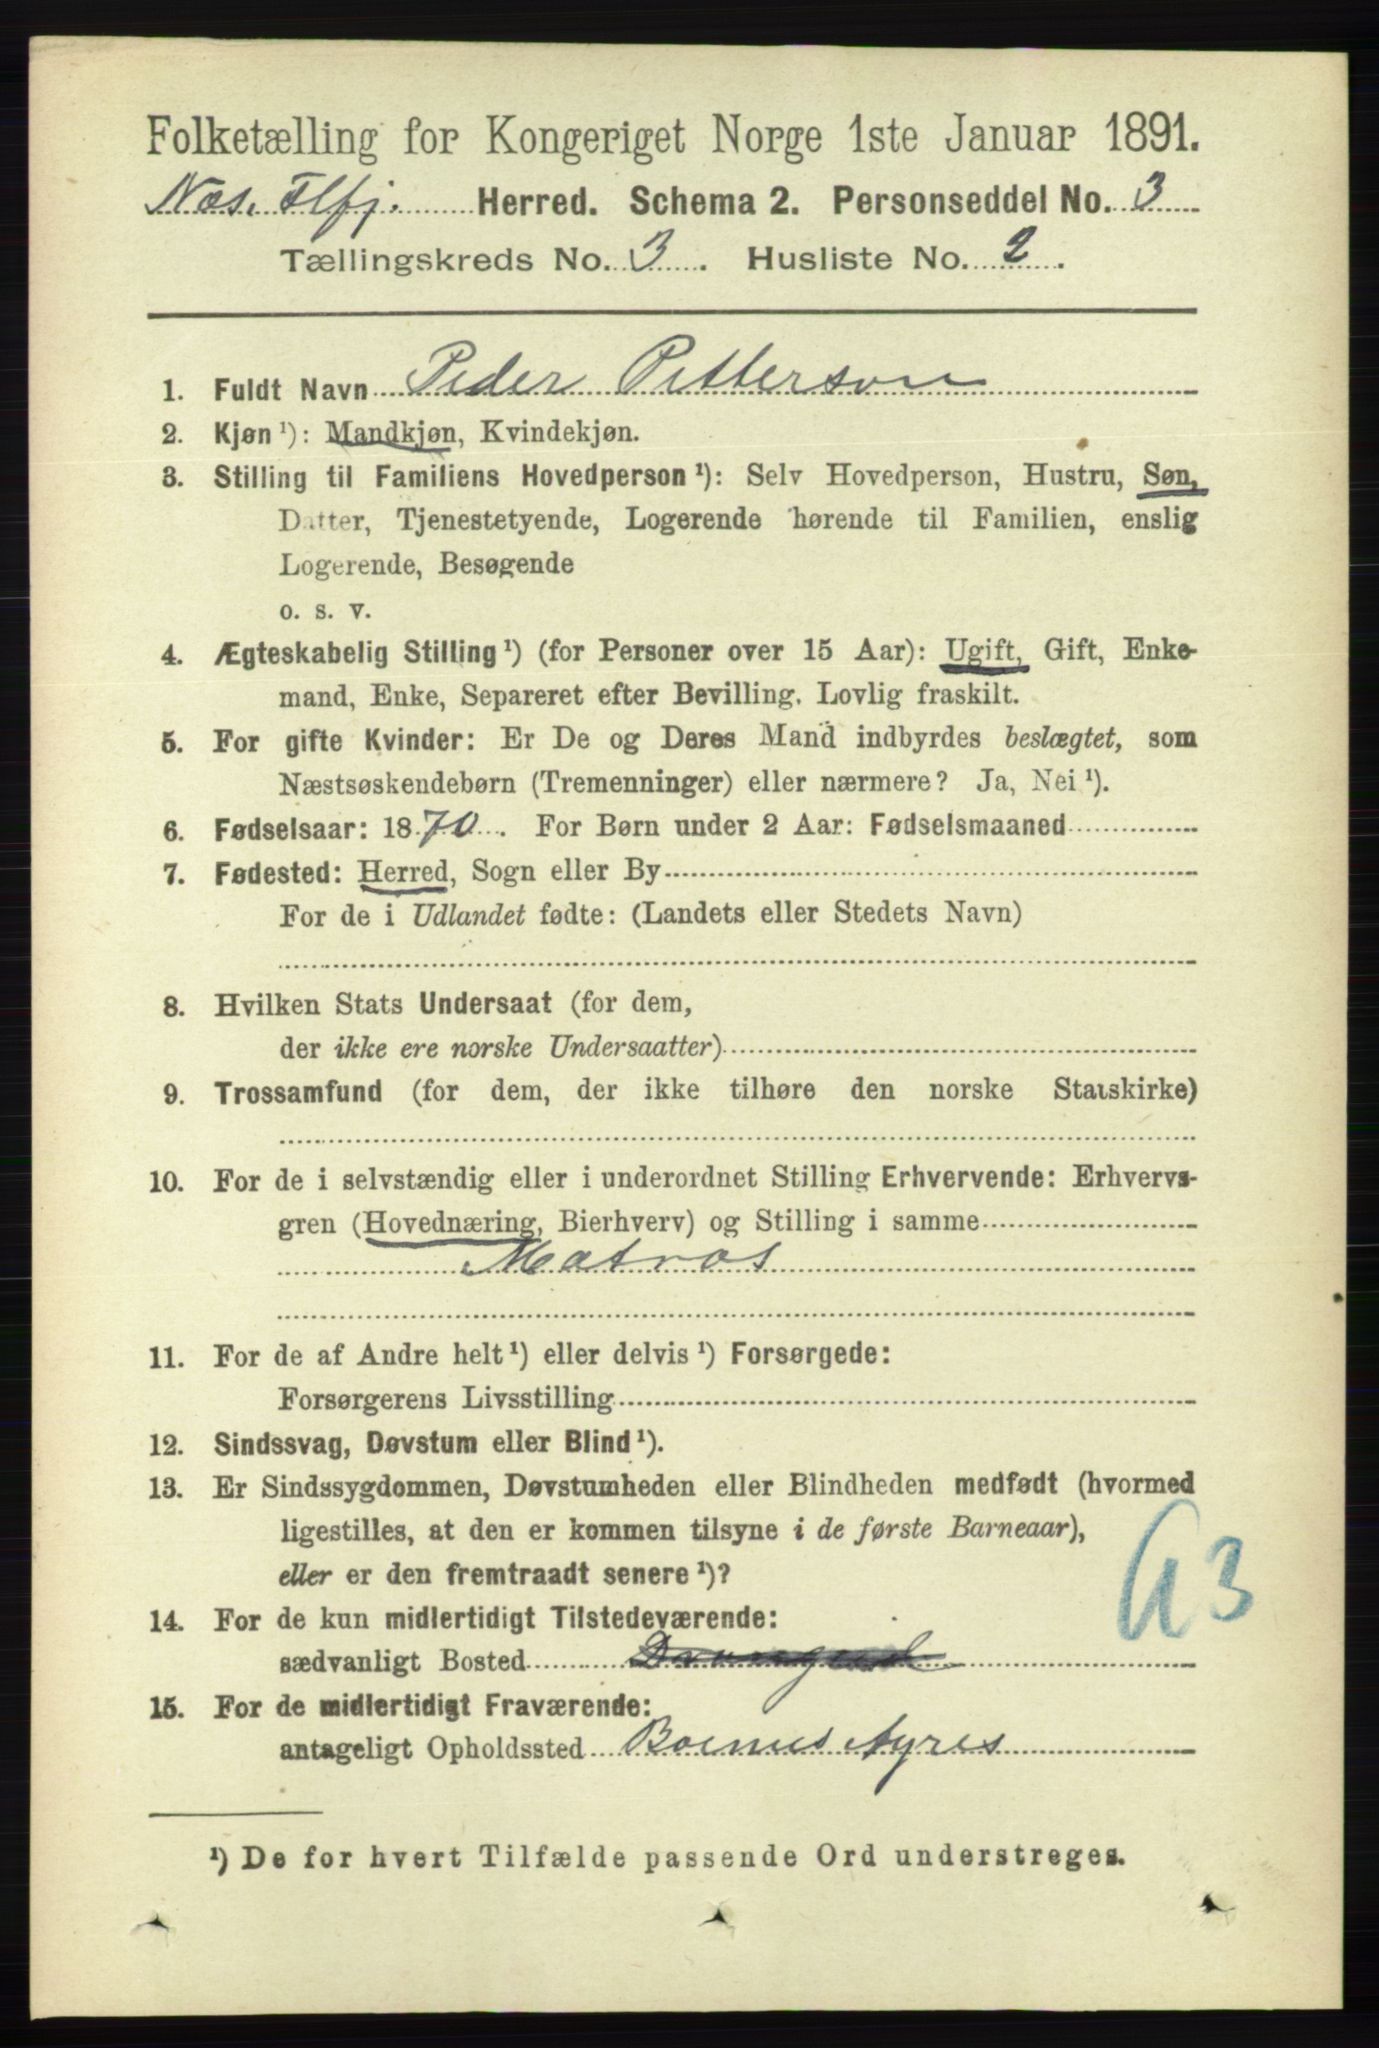 Folketælling for Kongeriget Norge 1ste Januar 1891.
Næs. Flfj. Herred. Schema 2. Personseddel No. 3
Tællingskreds No. 3. Husliste No. 2.
1. Fuldt Navn Peder Pitterson
2. Kjøn ¹): Mandkjøn, Kvindekjøn.
3. Stilling til Familiens Hovedperson ¹): Selv Hovedperson, Hustru, Søn,
Datter, Tjenestetyende, Logerende hørende til Familien, enslig
Logerende, Besøgende
o. s. v.
4. Ægteskabelig Stilling ¹) (for Personer over 15 Aar): Ugift, Gift, Enke-
mand, Enke, Separeret efter Bevilling. Lovlig fraskilt.
5. For gifte Kvinder: Er De og Deres Mand indbyrdes beslægtet, som
Næstsøskendebørn (Tremenninger) eller nærmere? Ja, Nei ¹).
6. Fødselsaar: 1870. For Børn under 2 Aar: Fødselsmaaned
7. Fødested: Herred, Sogn eller By
For de i Udlandet fødte: (Landets eller Stedets Navn)
8. Hvilken Stats Undersaat (for dem,
der ikke ere norske Undersaatter)
9. Trossamfund (for dem, der ikke tilhøre den norske Statskirke)
10. For de i selvstændig eller i underordnet Stilling Erhvervende: Erhvervs-
gren (Hovednæring, Bierhverv) og Stilling i samme
Matros
11. For de af Andre helt ¹) eller delvis ¹) Forsørgede:
Forsørgerens Livsstilling
12. Sindssvag, Døvstum eller Blind ¹).
13. Er Sindssygdommen, Døvstumheden eller Blindheden medfødt (hvormed
ligestilles, at den er kommen tilsyne i de første Barneaar),
eller er den fremtraadt senere ¹)?
14. For de kun midlertidigt Tilstedeværende:
sædvanligt Bosted
15. For de midlertidigt Fraværende:
antageligt Opholdssted Boenus Ayres
¹) De for hvert Tilfælde passende Ord understreges.